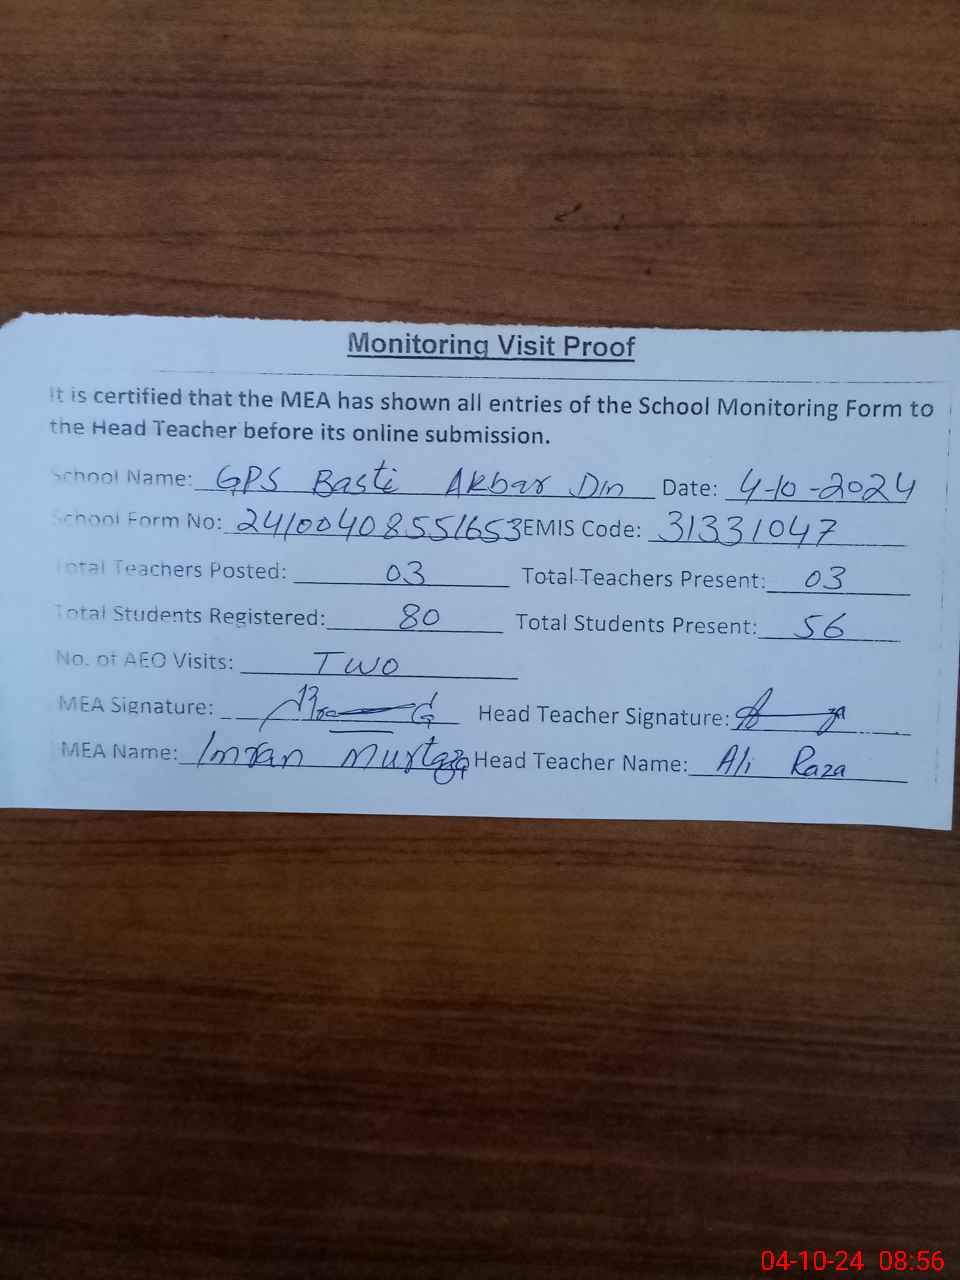 Monitoring Visit Proof
It is certified that the MEA has shown all entries of the School Monitoring Form to
the Head Teacher before its online submission.
School Name: GPS Basti Akbar Din Date: 4-10-2024
School Form No: 24100408551653 EMIS Code: 31331047
Total Teachers Posted: 03 Total Teachers Present: 03
Total Students Registered: 80 Total Students Present: 56
No. of AEO Visits: Two
MEA Signature: Head Teacher Signature:
MEA Name: Imran Murtaza Head Teacher Name: Ali Raza
04-10-24 08:56